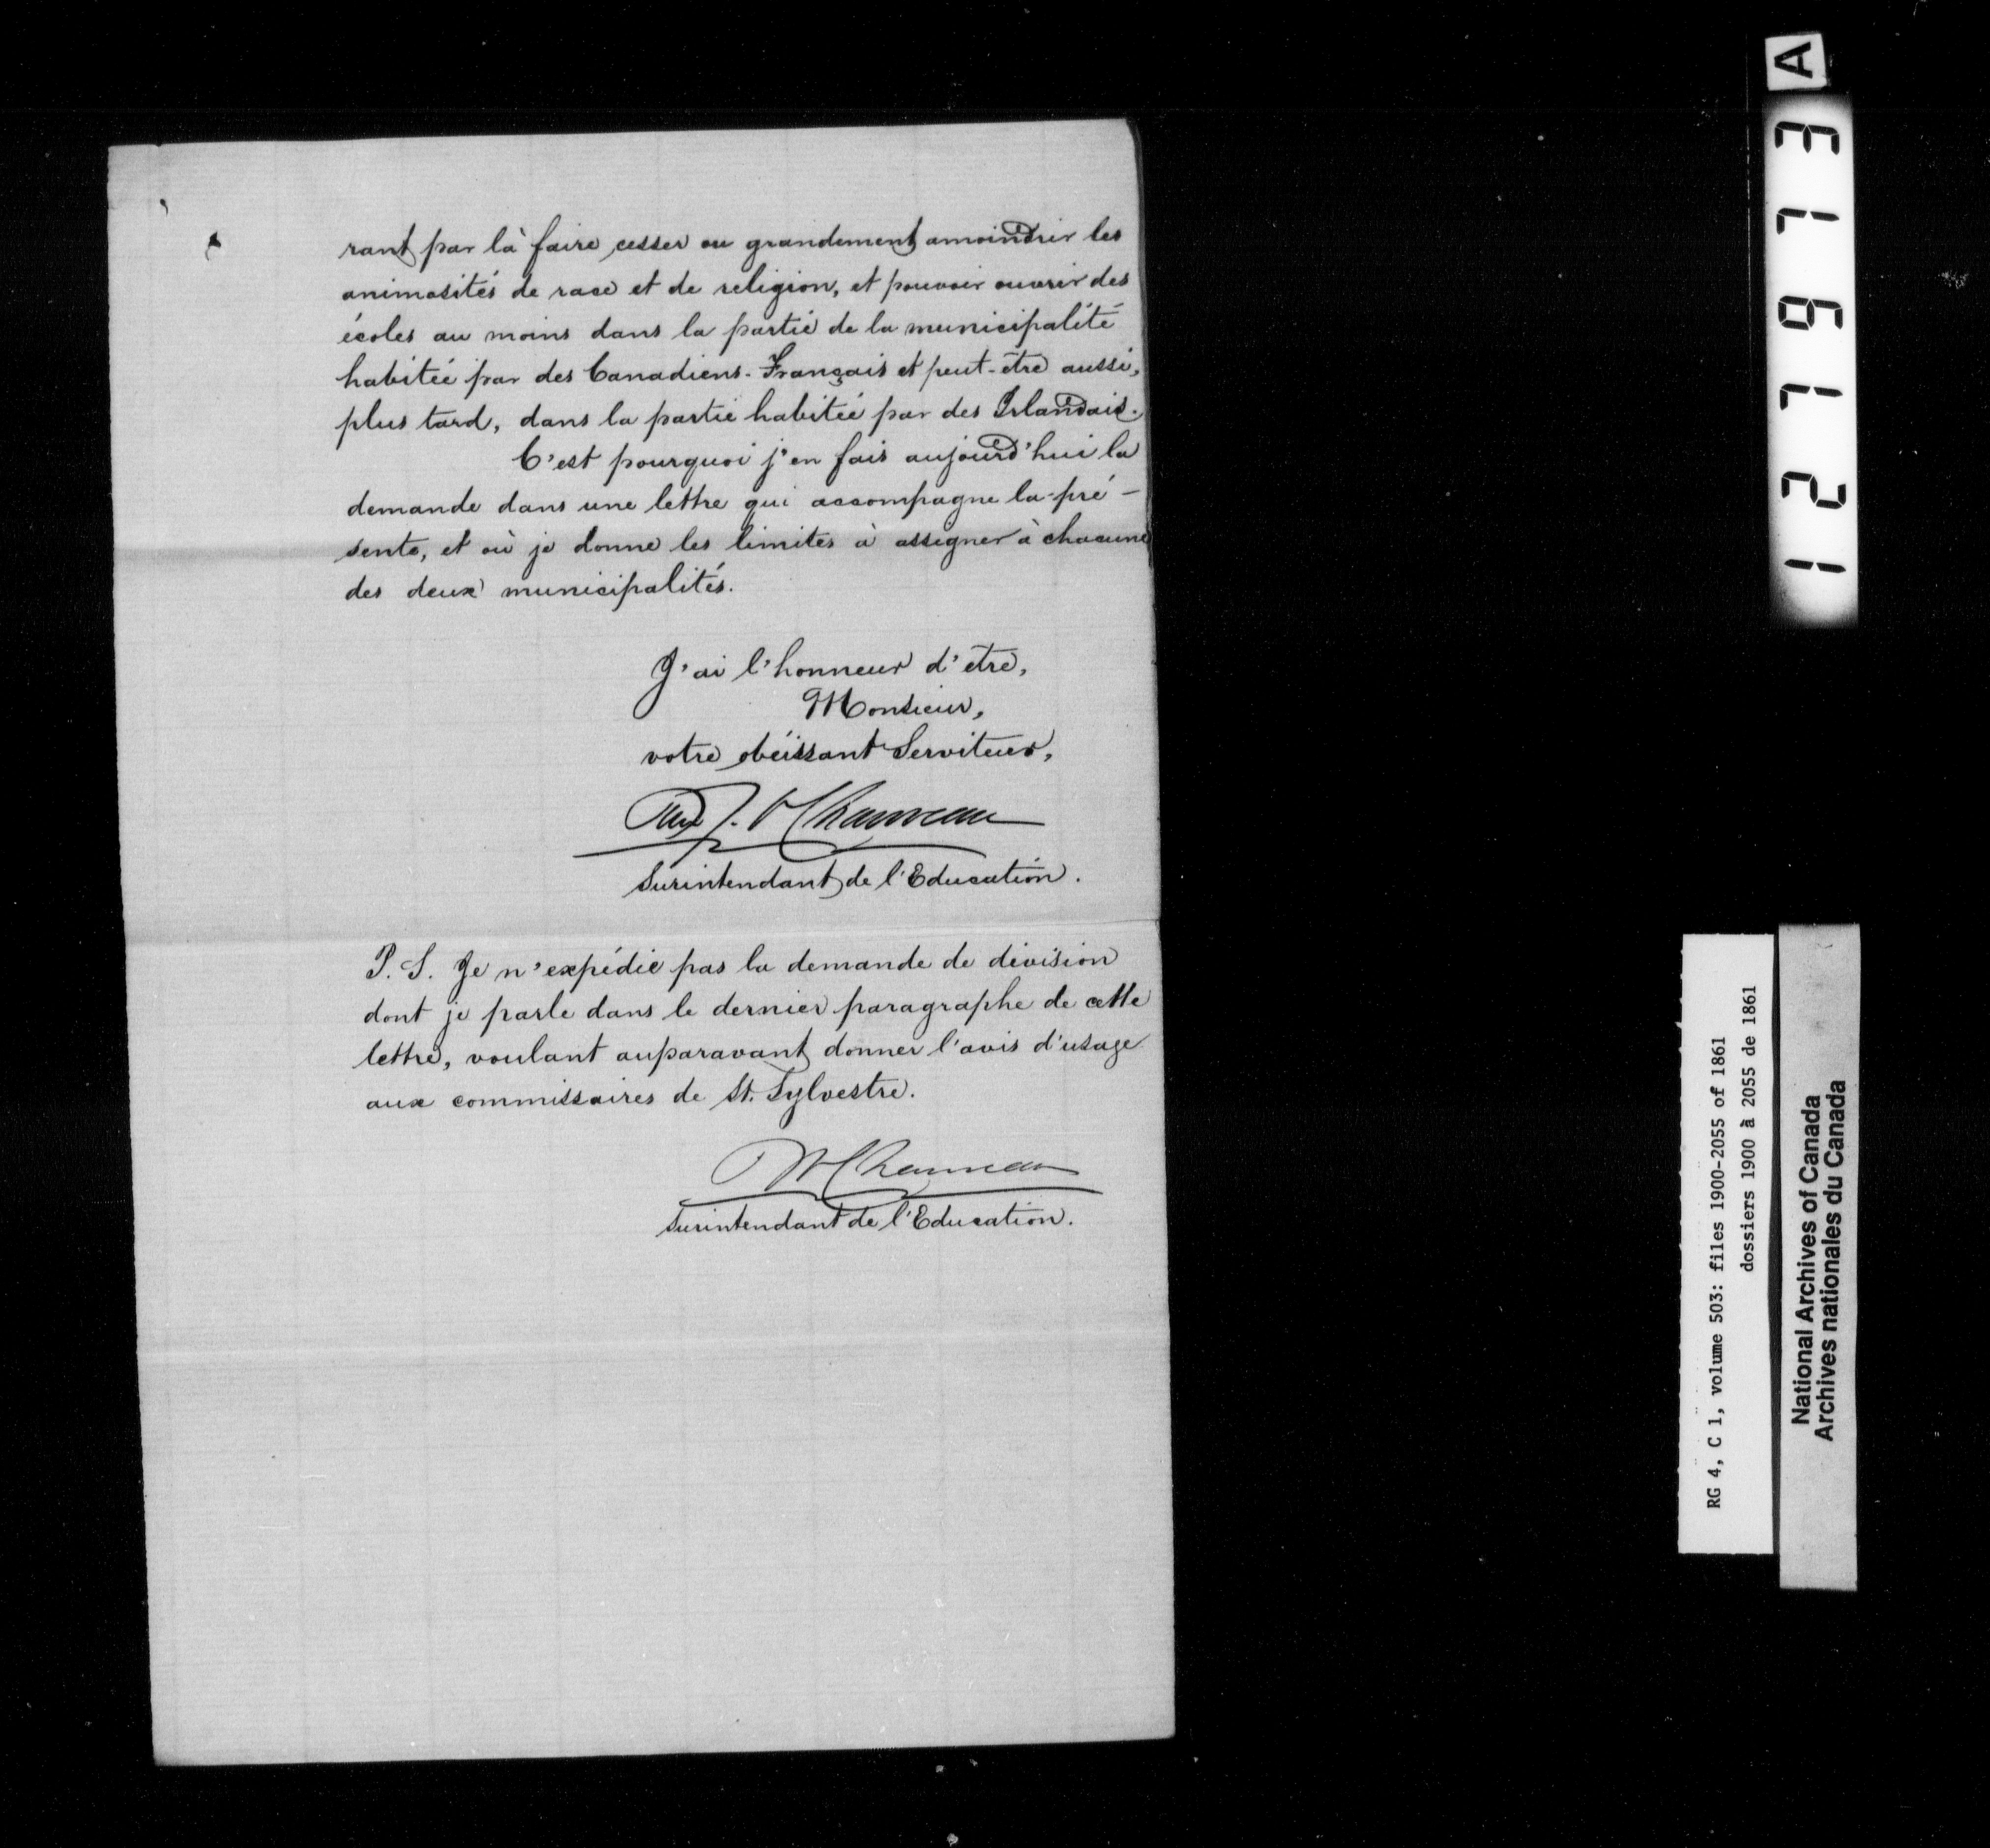 rant par là faire cesser ou grandement amoindrir les
animosités de race et de religion, et pouvoir ouvrir des
écoles au moins dans la partie de la municipalité
habitée par des Canadiens-Français et peut-être aussi,
plus tard, dans la partie habitée par des Irlandais.
C'est pourquoi j'en fais aujourd'hui la
demande dans une lettre qui accompagne la pré-
sente, et où je donne les limites à assigner à chacune
des deux municipalités.
J'ai l'honneur d'être,
Monsieur,
votre obéissant Serviteur,
J. O Chauveau
Surintendant de l'Education.
P. S. Je n'expédie pas la demande de division
dont je parle dans le dernier paragraphe de cette
lettre, voulant auparavant donner l'avis d'usage
aux commissaires de St. Sylvestre.
Chauveau
Surintendant de l'Education.
121973 A
RG 4, C 1, volume 503: files 1900-2055 of 1861
dossiers 1900 à 2055 de 1861
National Archives of Canada
Archives nationales du Canada